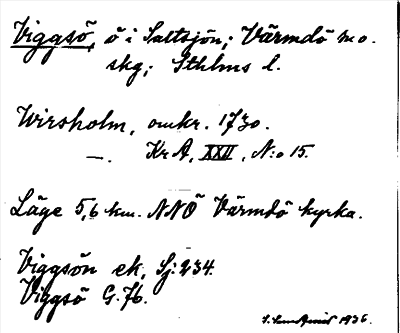 Viggsö, ö i Saltsjön; Värmdö m o.
skg; Sthlms l.
Wirsholm, omkr. 1730.
—. Kr A, XXII, N:o 15.
Läge 5,6 km. NNÖ Värmdö kyrka.
Viggsön ek, Sj: 234.
Viggsö G. 76.
1936.